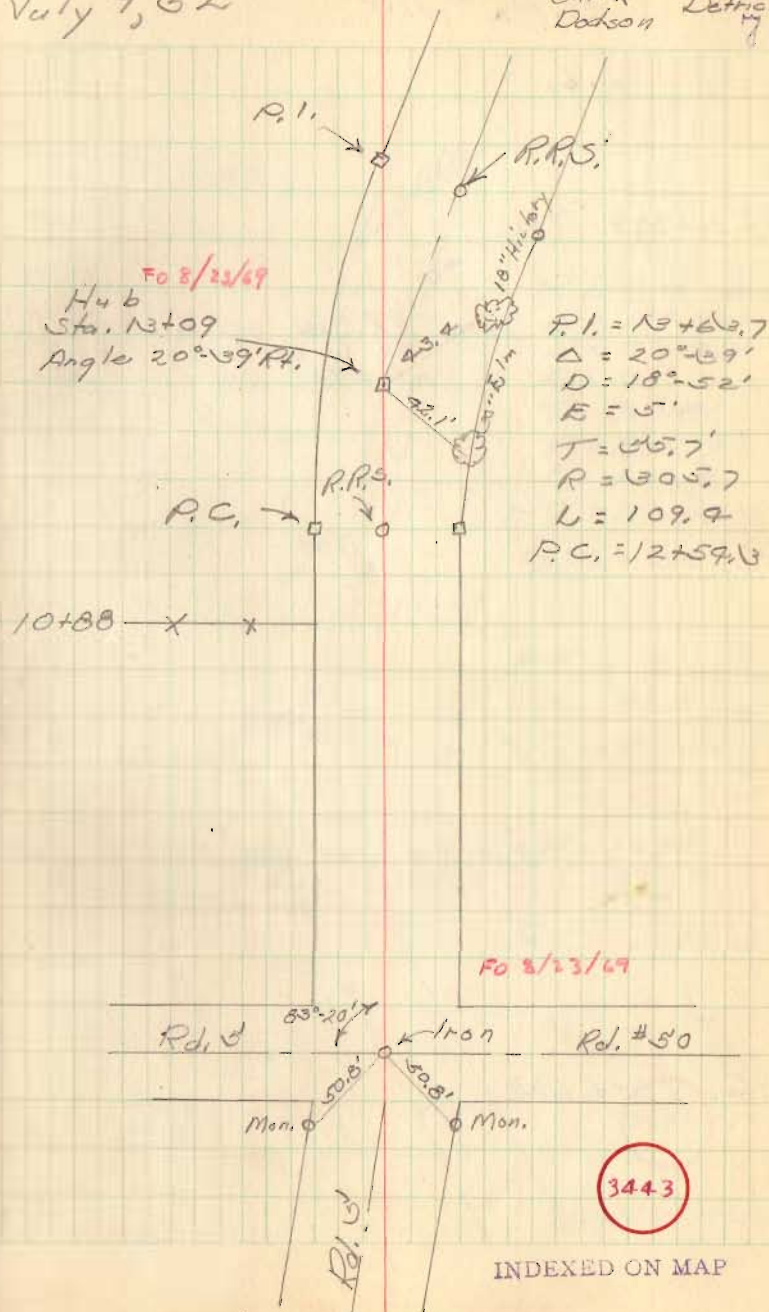 July 9, 62
Dodson Detric
P.I.
R.R.S.
18" Hickory
Fo 8/23/69
Hub
Sta. 13+09
Angle 20°-39' Rt.
43.4
42.1'
Elm
P.I. = 13+63.7
Δ = 20°-39'
D = 18°-52'
E = 5'
T = 55.7'
R = 305.7
L = 109.4
P.C. = 12+54.3
R.R.S.
P.C.
10+88
Fo 8/23/69
83°-20'
Rd. 5
Iron
Rd. #50
50.8'
50.8'
Mon.
Mon.
3443
Rd. 5
INDEXED ON MAP